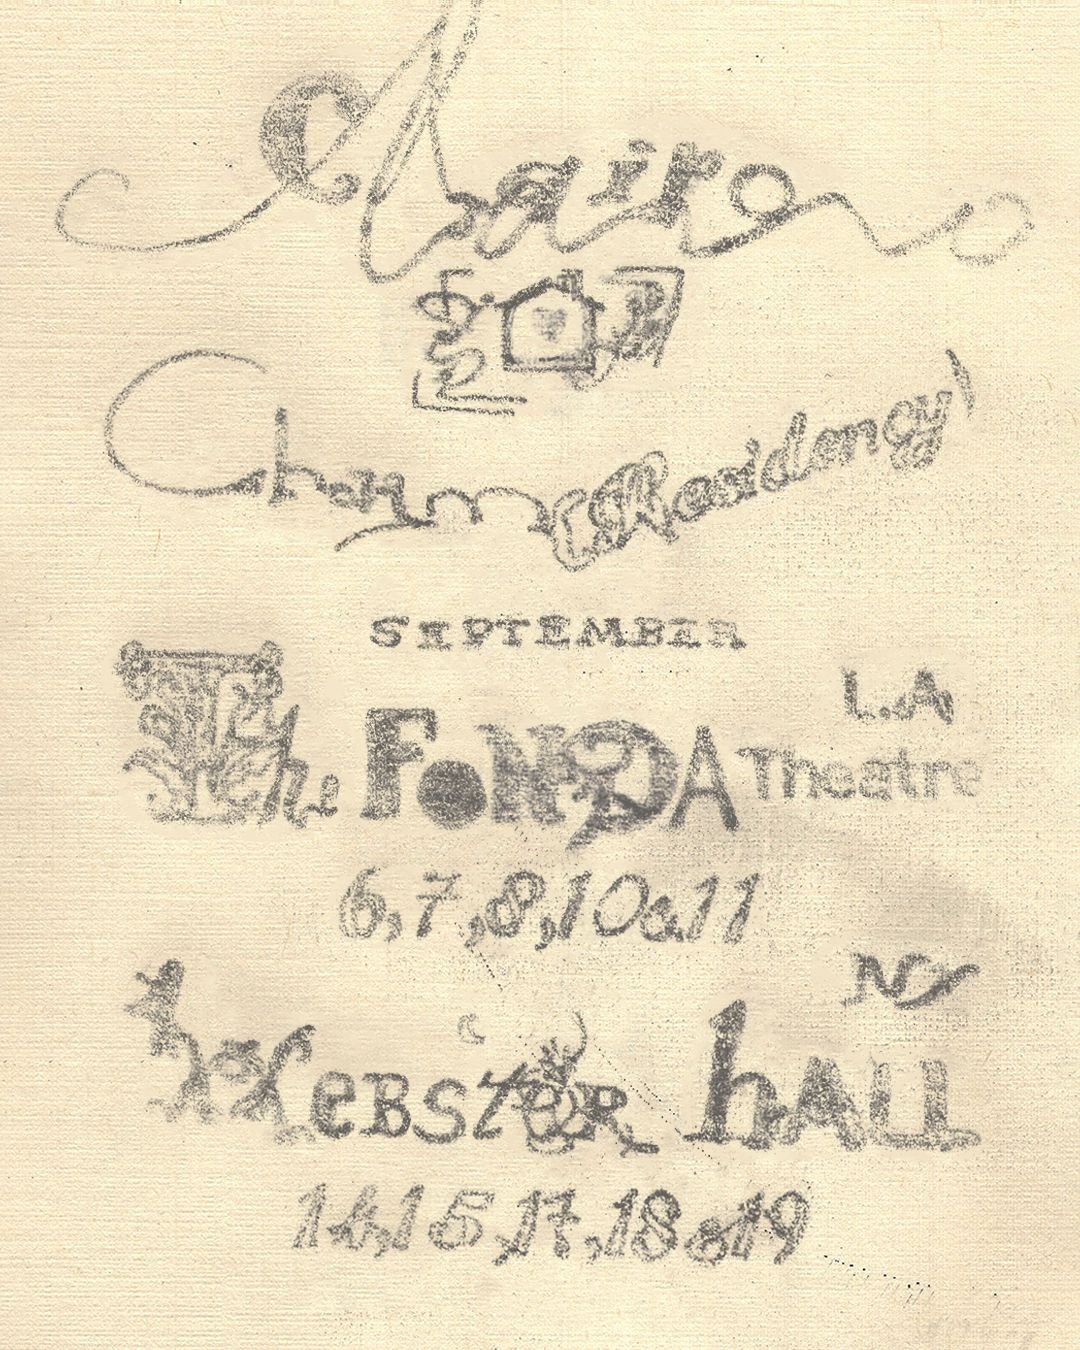 Clairo
Charm (Residency)
SEPTEMBER
L.A
The FONDA Theatre
6,7,8,10&11
NY
WEBSTER hALL
14,15,17,18&19